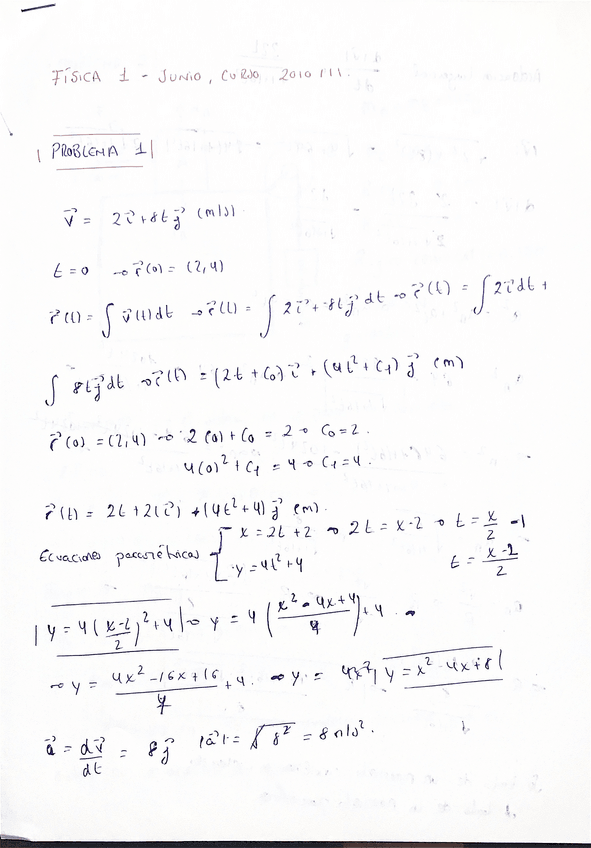 FÍSICA 1 - JUNIO, CURSO 2010/11.
PROBLEMA 1
v⃗ = 2i⃗ + 8t j⃗ (m/s)
t=0 → r⃗(0) = (2,4)
r⃗(t) = ∫ v⃗(t) dt → r⃗(t) = ∫ 2i⃗ + 8t j⃗ dt → r⃗(t) = ∫ 2i⃗ dt +
∫ 8t j⃗ dt → r⃗(t) = (2t + C₀) i⃗ + (4t² + C₁) j⃗ (m)
r⃗(0) = (2,4) → 2(0) + C₀ = 2 → C₀ = 2.
4(0)² + C₁ = 4 → C₁ = 4.
r⃗(t) = 2t + 2(i⃗) + (4t² + 4) j⃗ (m).
Ecuaciones paramétricas { x = 2t + 2 → 2t = x - 2 → t = x/2 - 1
y = 4t² + 4 t = (x-2)/2
y = 4 ((x-2)/2)² + 4 → y = 4 ((x² - 4x + 4)/4) + 4 →
→ y = (4x² - 16x + 16)/4 + 4 → y = 4x² y = x² - 4x + 8
a⃗ = dv⃗/dt = 8 j⃗ |a⃗| = √8² = 8 m/s².